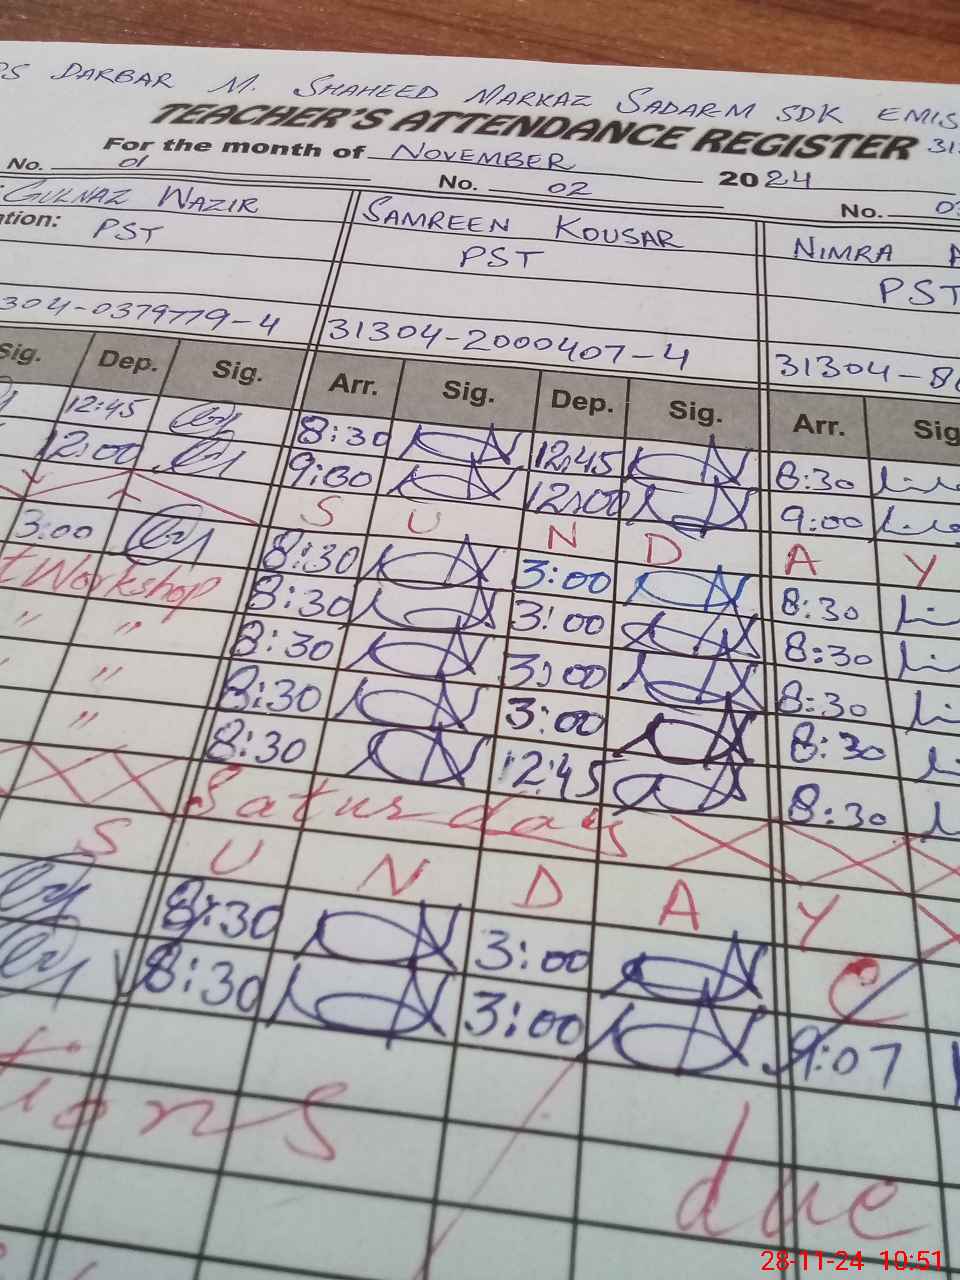 DARBAR M. SHAHEED MARKAZ SADAR-M SDK EMIS
TEACHER'S ATTENDANCE REGISTER 31
For the month of NOVEMBER 2024
No. 01 No. 02 No. 03
GULNAZ WAZIR SAMREEN KOUSAR NIMRA
tion: PST PST PST
304-0379779-4 31304-2000407-4 31304-8
Sig. Dep. Sig. Arr. Sig. Dep. Sig. Arr. Sig
12:45 8:30 12:45 8:30
12:00 9:00 12:00 9:00
S U N D A Y
3:00 8:30 3:00 8:30
t Workshop 8:30 3:00 8:30
" " 8:30 3:00 8:30
" 8:30 3:00 8:30
" 8:30 12:45 8:30
Saturday
S U N D A Y
8:30 3:00 C
8:30 3:00 9:07
tions due
28-11-24 10:51